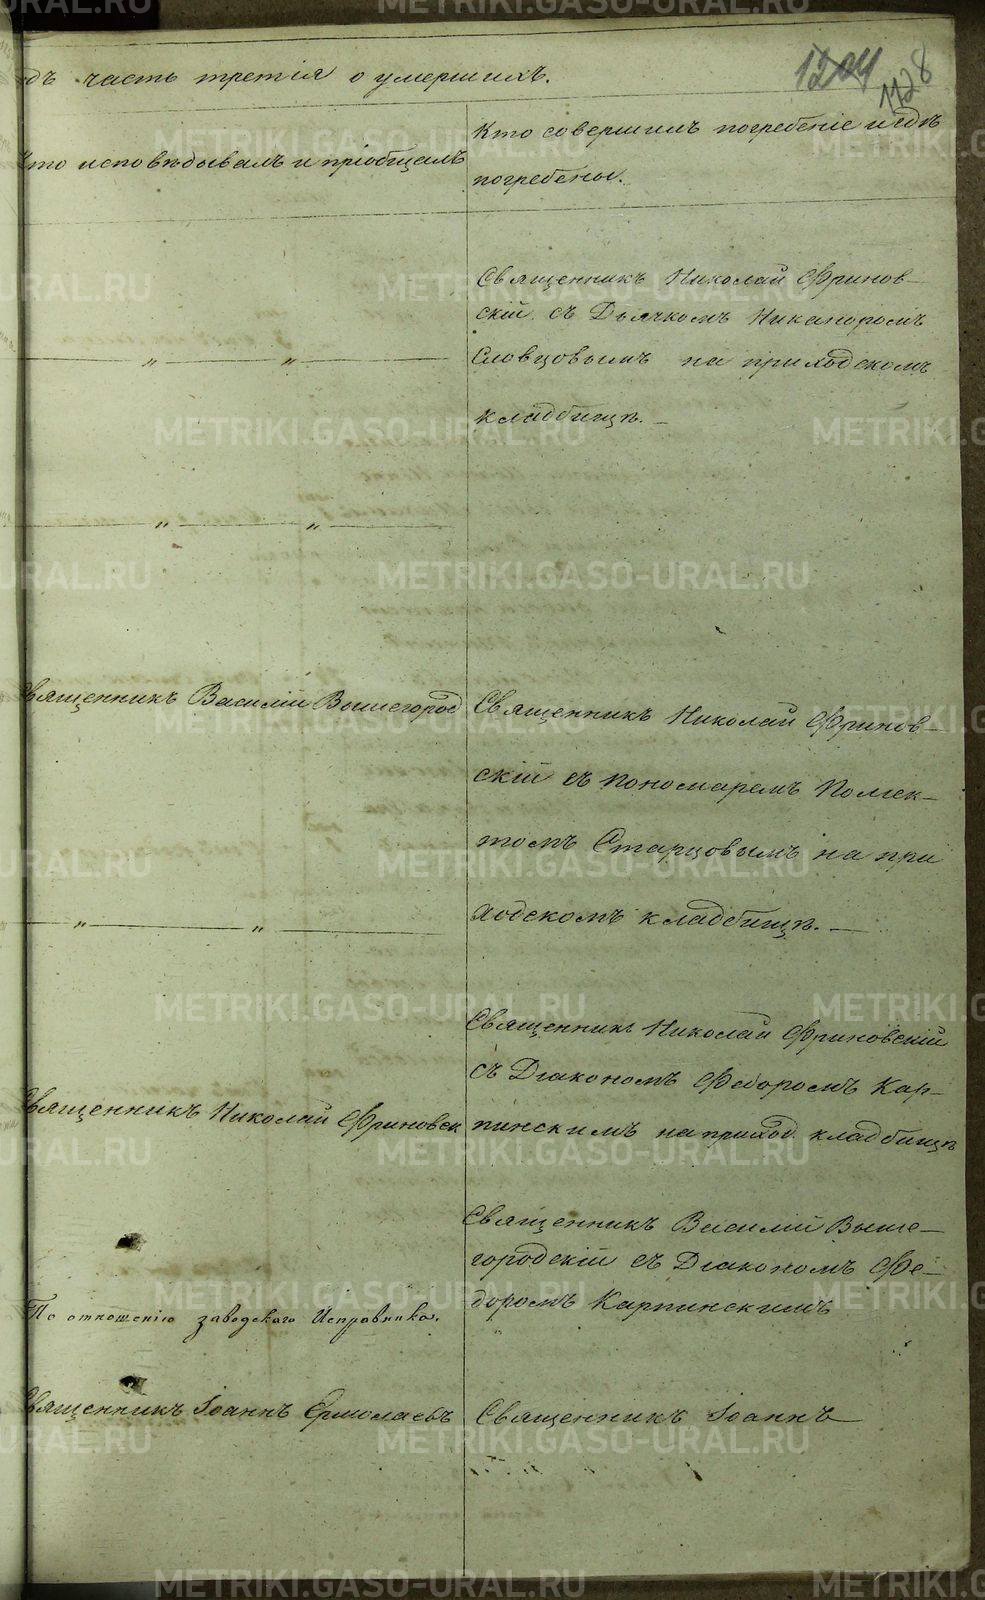 дъ часть третія о умершихъ.
1204
1128
Кто исповѣдывалъ и пріобщалъ
Кто совершилъ погребеніе и гдѣ
погребены.
Священникъ Николай Фринов–
скій съ Дьячкомъ Никаноромъ
Словцовымъ на приходскомъ
кладбищѣ. –
— „ — „ —
— „ — „ —
Священникъ Василій Вышегород
Священникъ Николай Фринов–
скій съ Пономаремъ Полiек–
томъ Старцовымъ на при
ходскомъ кладбищѣ. —
— „ — „ —
Священникъ Николай Фриновскій
съ Діакономъ Федоромъ Кар–
пинскимъ на приход. кладбищѣ
Священникъ Николай Фриновск
Священникъ Василій Выше–
городскій съ Діакономъ Фе–
доромъ Карпинскимъ
По отношенію заводскаго Исправника.
Священникъ Іоаннъ Ермолаевъ
Священникъ Іоаннъ
METRIKI.GASO-URAL.RU